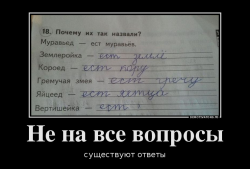 18. Почему их так назвали?
Муравьед — ест муравьёв.
Землеройка — ест змей
Короед — ест кору
Гремучая змея — ест гречу
Яйцеед — ест яйца
Вертишейка — ест
Не на все вопросы
существуют ответы